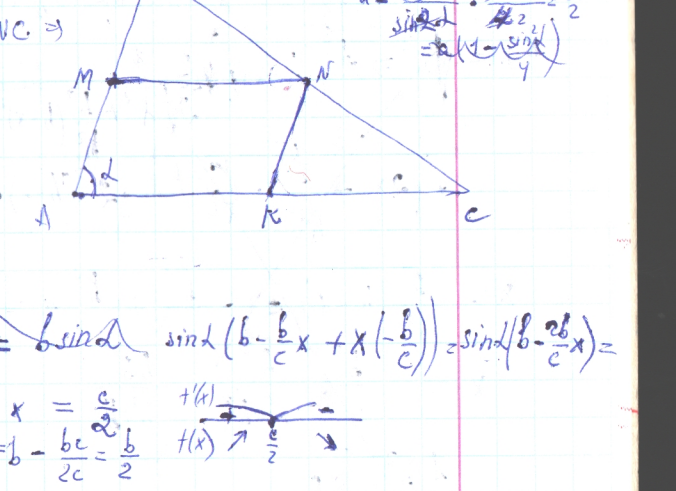 NC. ⇒
= a(1 - sin²α/4)
M N
α
A K C
= b sinα sinα(b - b/c x + x(-b/c)) = sinα(b - 2b/c x) =
x = c/2 f'(x) + -
= b - bc/2c = b/2 f(x) ↗ c/2 ↘